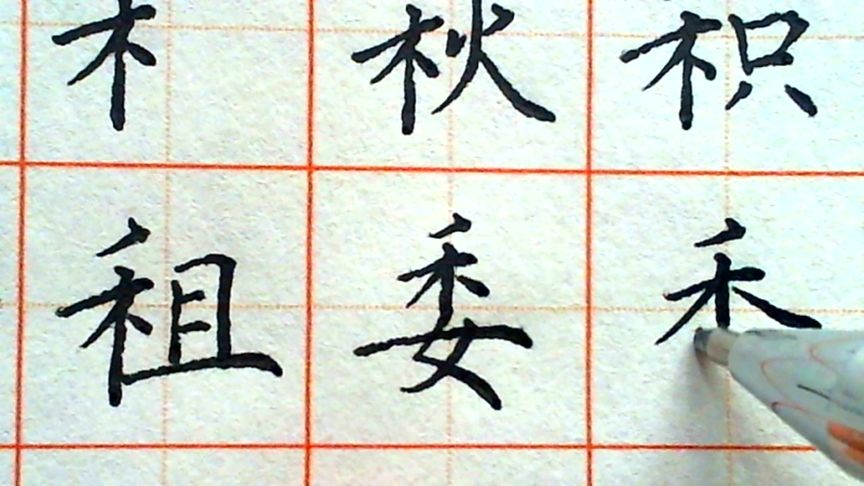 禾秋积
租委禾